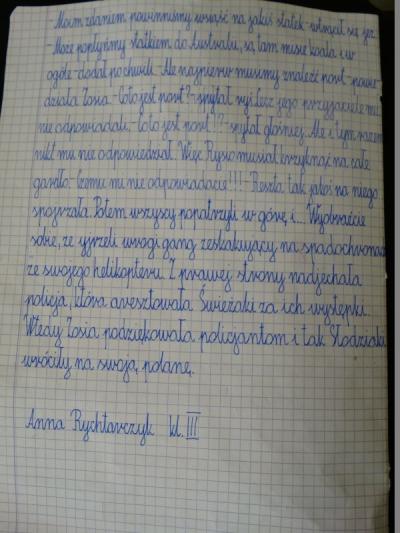 -Moim zdaniem powinniśmy wsiąść na jakiś statek-wtrącił się jeż
-Może popłyńmy statkiem do Australii, są tam misie koala i w
ogóle-dodał po chwili. -Ale najpierw musimy znaleźć port-powie-
działa Zosia.-Co to jest port?-spytał ryś lecz jego przyjaciele mu
nie odpowiadali.-Co to jest port!?-spytał głośniej. Ale i tym razem
nikt mu nie odpowiedział. Więc Rysio musiał krzyknąć na całe
gardło. Czemu mi nie odpowiadacie!!!-Reszta tak jakoś na niego
spojrzała. Potem wszyscy popatrzyli w górę i... Wyobraźcie
sobie, że ujrzeli wrogi gang zeskakujący na spadochronach
ze swojego helikoptera. Z prawej strony nadjechała
policja, która aresztowała Świeżaki za ich występki.
Wtedy Zosia podziękowała policjantom i tak Słodziaki
wróciły na swoją polanę.
Anna Rychtarczyk kl. III